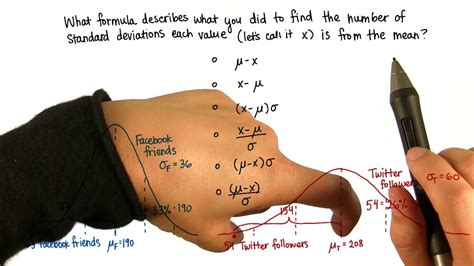 What formula describes what you did to find the number of
standard deviations each value (let's call it x) is from the mean?
μ-x
x-μ
(x-μ)σ
x-μ
σ
(μ-x)σ
(μ-x)
σ
Facebook
friends
σF = 36
33% 190
Facebook friends
μF = 190
Twitter
followers
σT = 60
54 = 26%
154
54
Twitter followers
μT = 208